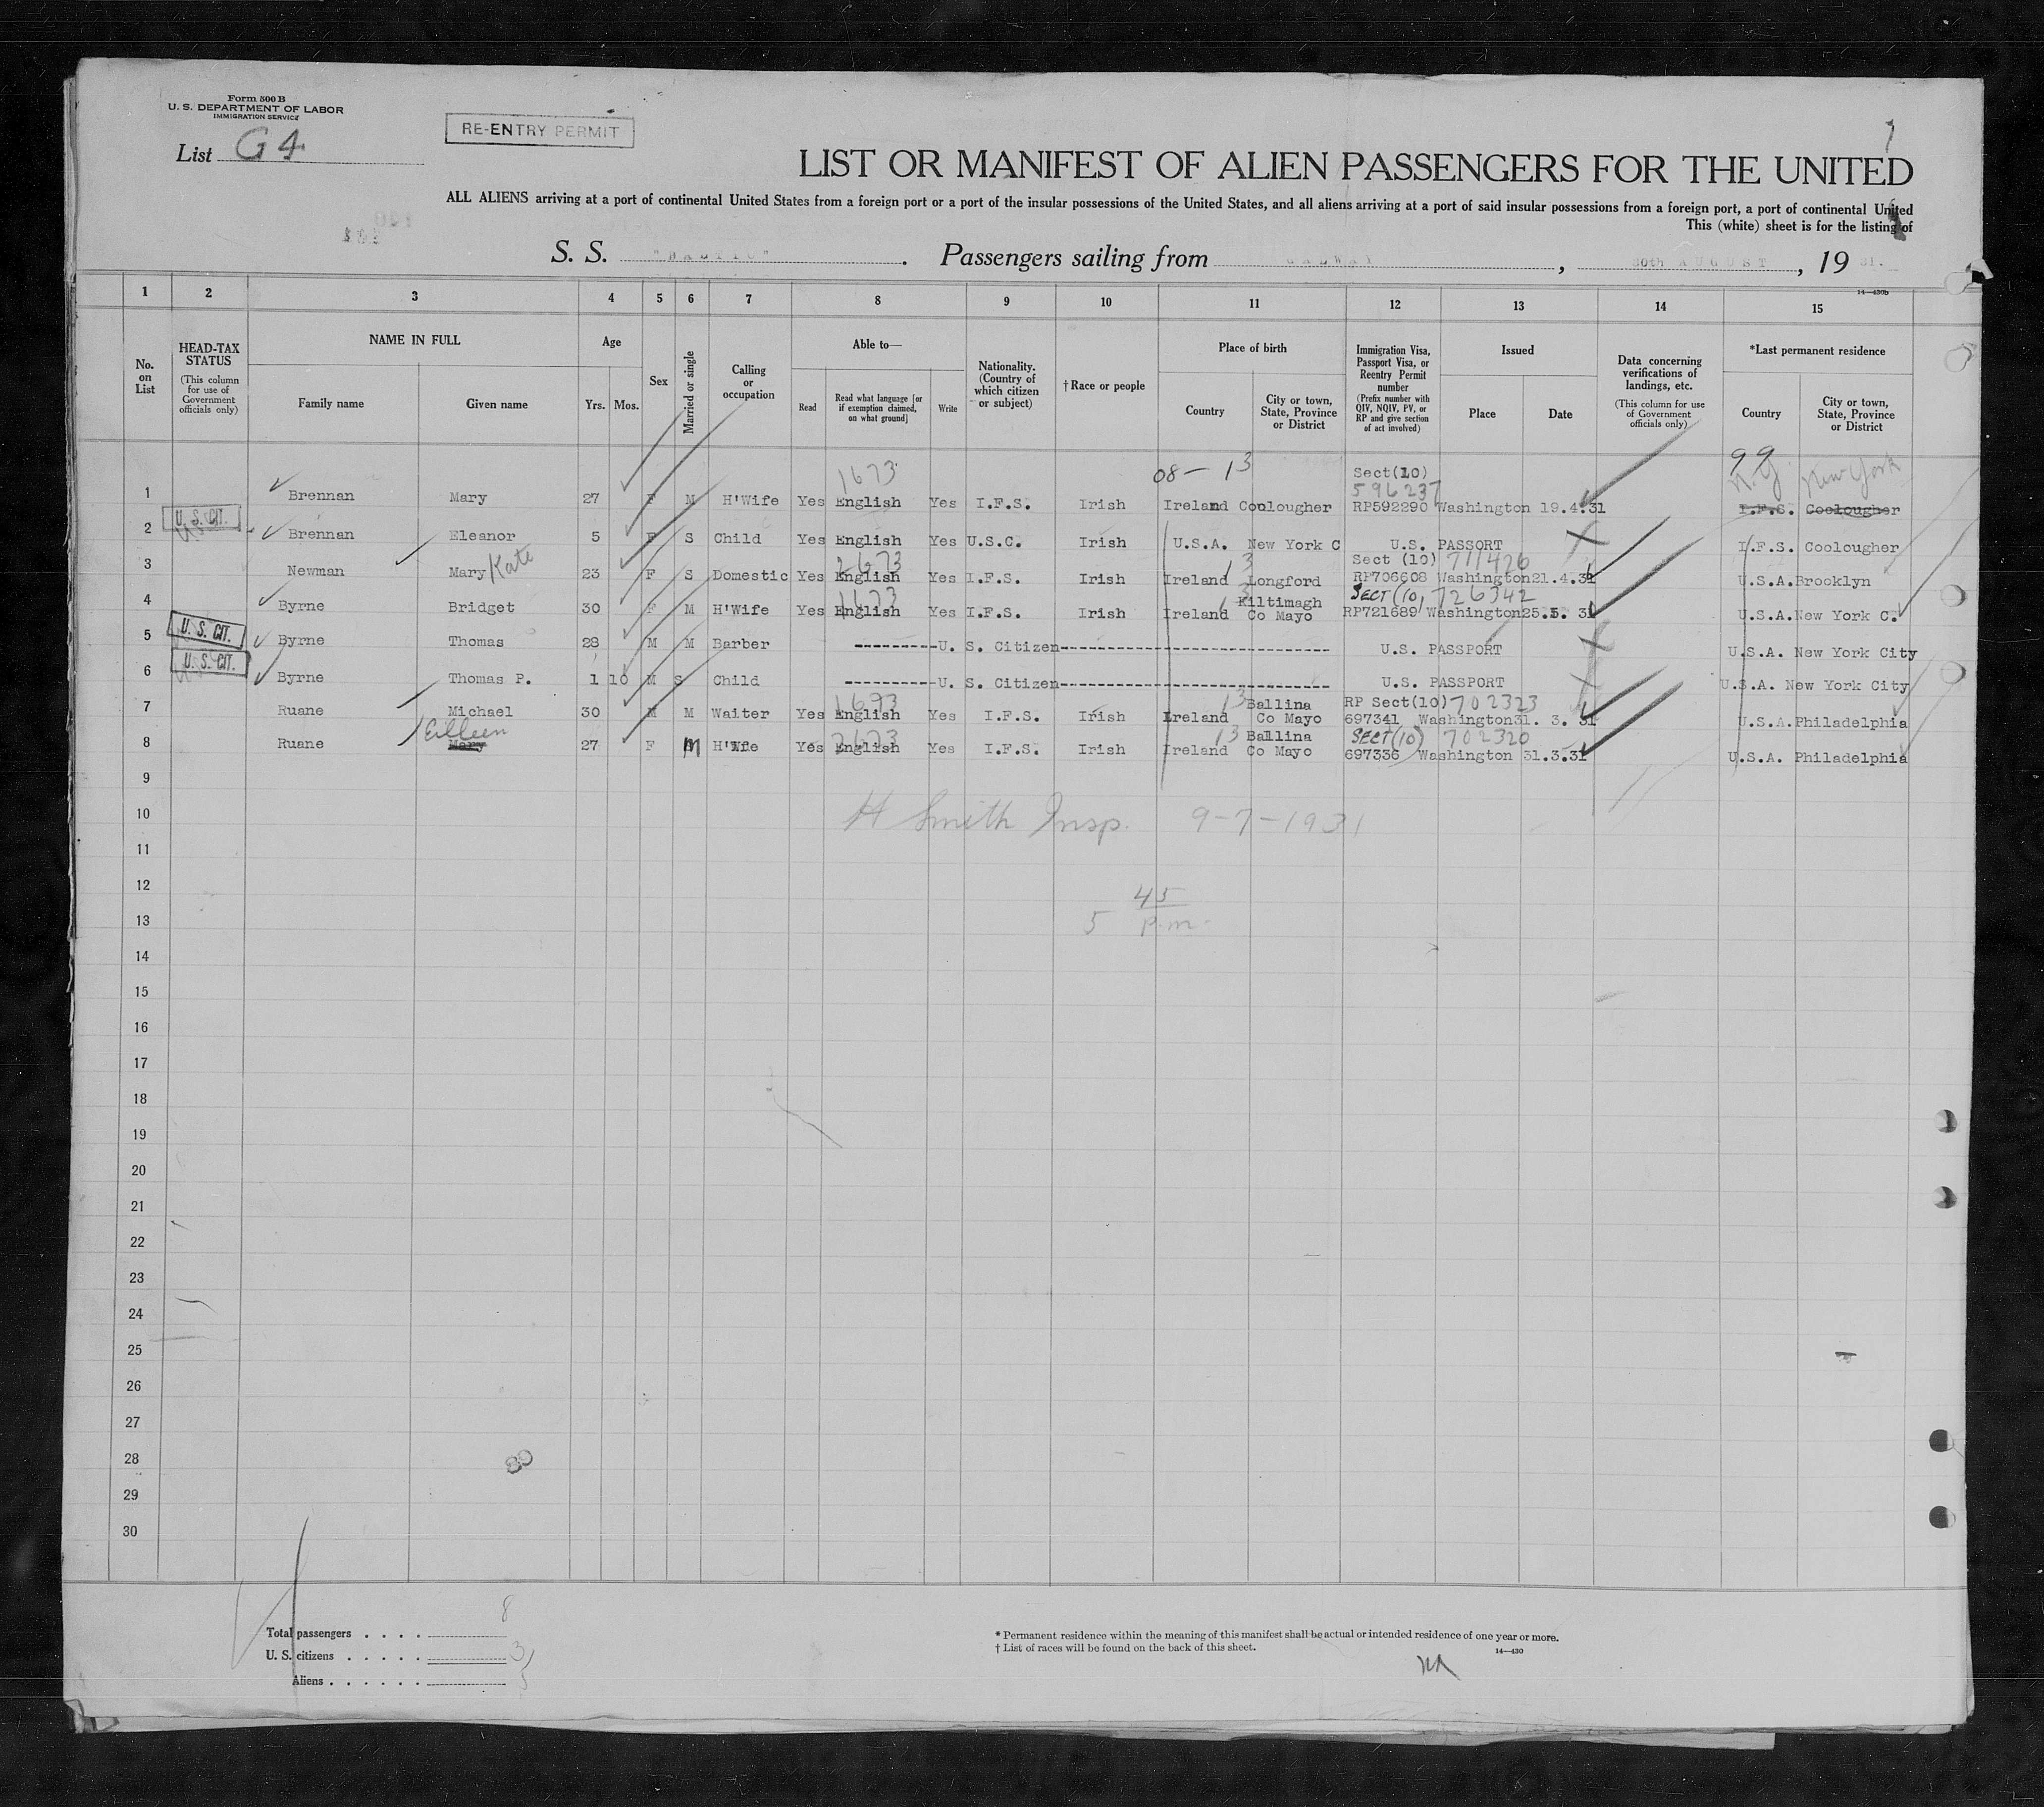 Form 500 B
U. S. DEPARTMENT OF LABOR
IMMIGRATION SERVICE
List G 4
RE-ENTRY PERMIT
LIST OR MANIFEST OF ALIEN PASSENGERS FOR THE UNITED
ALL ALIENS arriving at a port of continental United States from a foreign port or a port of the insular possessions of the United States, and all aliens arriving at a port of said insular possessions from a foreign port, a port of continental United
This (white) sheet is for the listing of
S. S. "BALTIC". Passengers sailing from GALWAY, 30th AUGUST, 19 31.
14—430B
1 2 3 4 5 6 7 8 9 10 11 12 13 14 15
No. on List
HEAD-TAX STATUS
(This column for use of Government officials only)
NAME IN FULL
Family name
Given name
Age
Yrs. Mos.
Sex
Married or single
Calling or occupation
Able to—
Read
Read what language [or if exemption claimed, on what ground]
Write
Nationality. (Country of which citizen or subject)
†Race or people
Place of birth
Country
City or town, State, Province or District
Immigration Visa, Passport Visa, or Reentry Permit number
(Prefix number with QIV, NQIV, PV, or RP and give section of act involved)
Issued
Place
Date
Data concerning verifications of landings, etc.
(This column for use of Government officials only)
*Last permanent residence
Country
City or town, State, Province or District
1673 08 — 13 Sect(10) 99
596237 N.Y New York
1 Brennan Mary 27 F M H'Wife Yes English Yes I.F.S. Irish Ireland Coolougher RP592290 Washington 19.4.31 I.F.S. Coolougher
U. S. CIT.
2 Brennan Eleanor 5 F S Child Yes English Yes U.S.C. Irish U.S.A. New York C U.S. PASSORT I.F.S. Coolougher
2673 3 Sect (10) 711426
3 Newman Mary Kate 23 F S Domestic Yes English Yes I.F.S. Irish Ireland Longford RP706608 Washington 21.4.31 U.S.A. Brooklyn
1673 3 Kiltimagh SECT (10, 726342
4 Byrne Bridget 30 F M H'Wife Yes English Yes I.F.S. Irish Ireland Co Mayo RP721689 Washington 25.5. 31 U.S.A. New York C.
U. S. CIT.
5 Byrne Thomas 28 M M Barber ---------U. S. Citizen------------------------------ U.S. PASSPORT U.S.A. New York City
U. S. CIT.
6 Byrne Thomas P. 1 10 M S Child ---------U. S. Citizen------------------------------ U.S. PASSPORT U.S.A. New York City
1673 13 Ballina RP Sect(10) 702323
7 Ruane Michael 30 M M Waiter Yes English Yes I.F.S. Irish Ireland Co Mayo 697341 Washington 31. 3. 31 U.S.A. Philadelphia
Eilleen 2673 13 Ballina SECT(10) 702320
8 Ruane Mary 27 F M H'Wfe Yes English Yes I.F.S. Irish Ireland Co Mayo 697336 Washington 31.3.31 U.S.A. Philadelphia
9
10 H Smith Insp. 9-7-1931
11
12
45
13 5 P.m.
14
15
16
17
18
19
20
21
22
23
24
25
26
27
28
29
30
Total passengers . . . . 8
U. S. citizens . . . . . 3
Aliens . . . . . . 5
* Permanent residence within the meaning of this manifest shall be actual or intended residence of one year or more.
† List of races will be found on the back of this sheet.
14—430